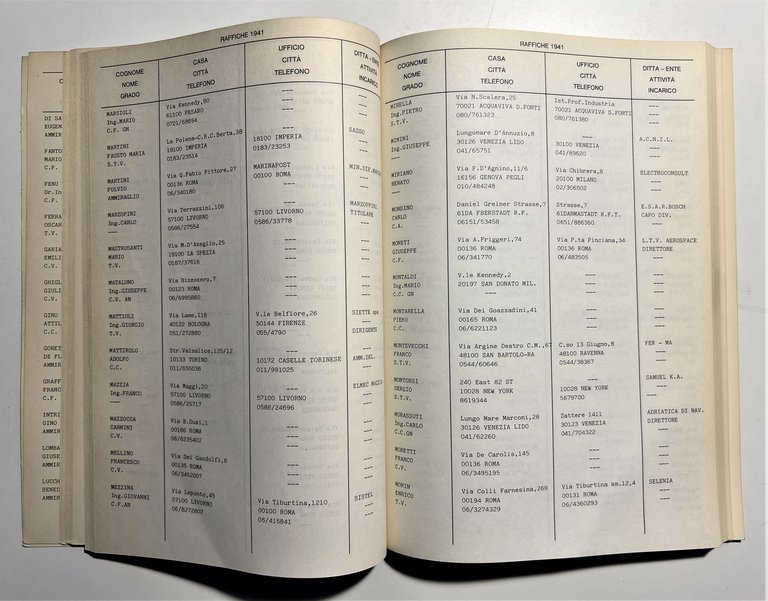 RAFFICHE 1941
COGNOME
NOME
GRADO
CASA
CITTÀ
TELEFONO
UFFICIO
CITTÀ
TELEFONO
DITTA – ENTE
ATTIVITÀ
INCARICO
MARSIGLI
Ing.MARIO
C.F. GN
Via Kennedy,80
61100 PESARO
0721/68694
---
---
---
---
---
MARTINI
FAUSTO MARIA
S.T.V.
La Polena-C.R.C.Berta,38
18100 IMPERIA
0183/23514
18100 IMPERIA
0183/23253
SASSO
---
---
MARTINI
FULVIO
AMMIRAGLIO
Via Q.Fabio Pittore,27
00136 ROMA
06/340180
MARINAPOST
00100 ROMA
---
MIN.DIF.MARINA
---
MARZOPINI
Ing.CARLO
---
Via Terrazzini,106
57100 LIVORNO
0586/27554
---
57100 LIVORNO
0586/33778
MARZOPPINI
TITOLARE
MASTROSANTI
MARIO
T.V.
Via M.D'Azeglio,25
19100 LA SPEZIA
0187/37616
---
---
---
---
---
MATALUNO
Ing.GIUSEPPE
C.V. AN
Via Bizzozero,7
00123 ROMA
06/6995860
---
---
---
---
---
MATTIOLI
Ing.GIORGIO
T.V.
Via Lame,118
40122 BOLOGNA
051/272880
V.le Belfiore,26
50144 FIRENZE
055/4790
SIETTE spa
---
DIRIGENTE
MATTIROLO
ADOLFO
C.C.
Str.Valsalice,125/12
10133 TORINO
011/655036
---
10172 CASELLE TORINESE
011/991025
---
AMM.DEL.
MAZZIA
Ing.FRANCO
---
Via Maggi,20
57100 LIVORNO
0586/25717
---
57100 LIVORNO
0586/24696
ELMEC
---
---
MAZZOCCA
CARMINI
C.V.
Via B.Dusi,1
00166 ROMA
06/6235402
---
---
---
---
---
MELLINO
FRANCESCO
C.V.
Via Dei Gandolfi,6
00135 ROMA
06/3452007
---
---
---
---
---
MEZZINA
Ing.GIOVANNI
C.F.AN
Via Leponto,45
57100 LIVORNO
06/8272802
Via Tiburtina,1210
00100 ROMA
06/415841
SISTEL
---
---
RAFFICHE 1941
COGNOME
NOME
GRADO
CASA
CITTÀ
TELEFONO
UFFICIO
CITTÀ
TELEFONO
DITTA – ENTE
ATTIVITÀ
INCARICO
MIRELLA
Ing.PIETRO
S.T.V.
Via N.Scalera,25
70021 ACQUAVIVA D.FONTI
080/761323
Ist.Prof.Industria
70021 ACQUAVIVA D.FONTI
080/761380
---
---
---
MONINI
Ing.GIUSEPPE
---
Lungomare D'Annuzio,8
30126 VENEZIA LIDO
041/65751
---
30100 VENEZIA
041/89620
A.C.N.I.L.
---
---
MIRIANO
RENATO
---
Via F.D'Agnino,11/6
16156 GENOVA PEGLI
010/484248
Via Chitrera,8
20100 MILANO
02/306502
ELECTROCONSULT
---
---
MONDINO
CARLO
C.A.
Daniel Greiner Strasse,7
61DA EBERSTADT R.F.
06151/53458
Strasse,7
61DARMASTADT R.F.T.
0651/886360
E.S.A.R.BOSCH
CAPO DIV.
---
MONETI
GIUSEPPE
C.F.
Via A.Friggeri,74
00136 ROMA
06/341770
Via P.ta Pinciana,34
00136 ROMA
06/483505
L.T.V. AEROSPACE
DIRETTORE
MONTALDI
Ing.MARIO
C.C. GN
V.le Kennedy,2
20197 SAN DONATO MIL.
---
---
---
---
---
---
---
MONTARELLA
PIERO
C.C.
Via Dei Goazzadini,41
00165 ROMA
06/6221123
---
---
---
---
---
---
MONTEVECCHI
FRANCO
S.T.V.
Via Argine Destro C.M.,67
48100 SAN BARTOLO-RA
0544/60646
C.so 13 Giugno,8
48100 RAVENNA
0544/38367
FER - MA
---
---
MONTORSI
SERGIO
S.T.V.
240 East 82 ST
10028 NEW YORK
8619344
---
10028 NEW YORK
5679700
SAMUEL K.A.
---
---
MORASSUTI
Ing.CARLO
C.C.GN
Lungo Mare Marconi,28
30126 VENEZIA LIDO
041/62260
Zattere 1411
30123 VENEZIA
041/704322
ADRIATICA DI NAV.
DIRETTORE
---
MORETTI
FRANCO
C.V.
Via De Carolis,145
00136 ROMA
06/3495195
---
---
---
---
---
---
MORIN
ENRICO
T.V.
Via Colli Farnesina,269
00194 ROMA
06/3274329
Via Tiburtina km.12,4
00131 ROMA
06/4360293
SELENIA
---
---